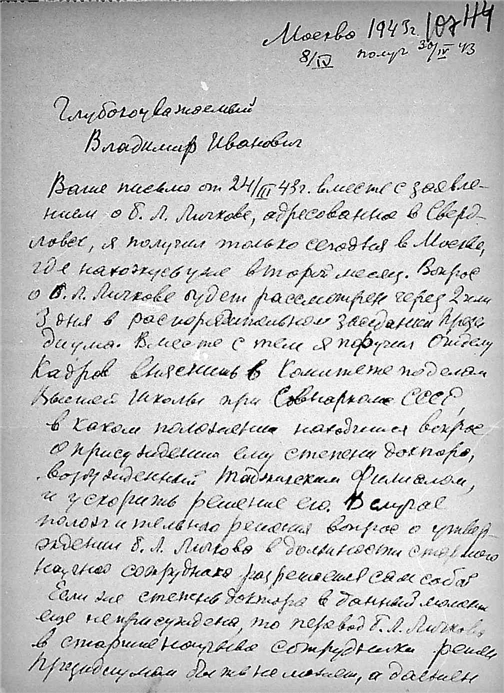 Москва 1943 г.
8/IV получ 30/IV 43
Глубокоуважаемый
Владимир Иванович
Ваше письмо от 24/III 43 г. вместе с заявле-
нием о Б. Л. Личкове, адресованное в Сверд-
ловск, я получил только сегодня в Москве,
где нахожусь уже второй месяц. Вопрос
о Б. Л. Личкове будет рассмотрен через 2 или
3 дня в распорядительном заседании Прези
диума. Вместе с тем я поручил Отделу
Кадров выяснить в Комитете по делам
Высшей Школы при Совнаркоме СССР
в каком положении находится вопрос
о присуждении ему степени доктора,
возбужденный Таджикским Филиалом,
и ускорить решение его. В случае
положительного решения вопрос о утвер-
ждении Б. Л. Личкова в должности старшего
научного сотрудника разрешается сам собой
Если же степень доктора в данный момент
еще не присуждена, то перевод Б. Л. Личкова
в старшие научные сотрудники решен
Президиумом быть не может, и должен